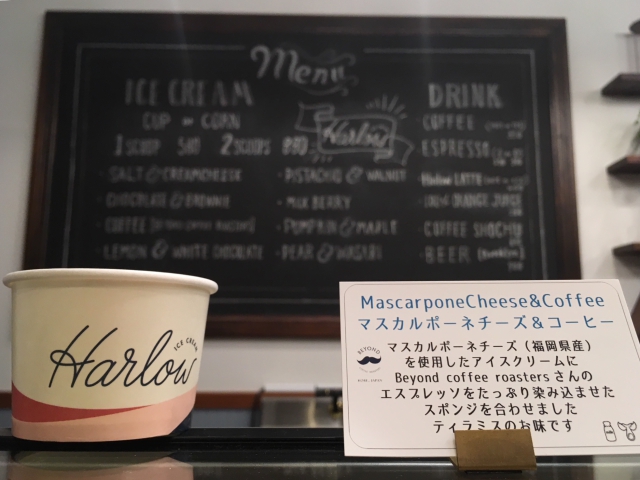 Menu
ICE CREAM
CUP or CORN
1 SCOOP 2 SCOOPS
Harlow
SALT & CREAMCHEESE
CHOCOLATE & BROWNIE
COFFEE
LEMON & WHITE CHOCOLATE
PISTACHIO & WALNUT
MILK BERRY
PUMPKIN & MAPLE
PEAR & WASABI
DRINK
COFFEE
ESPRESSO
Harlow LATTE
100% ORANGE JUICE
COFFEE SHOCHU
BEER
Harlow
ICE CREAM
MascarponeCheese&Coffee
マスカルポーネチーズ&コーヒー
BEYOND
マスカルポーネチーズ(福岡県産)
を使用したアイスクリームに
Beyond coffee roastersさんの
エスプレッソをたっぷり染み込ませた
スポンジを合わせました
ティラミスのお味です